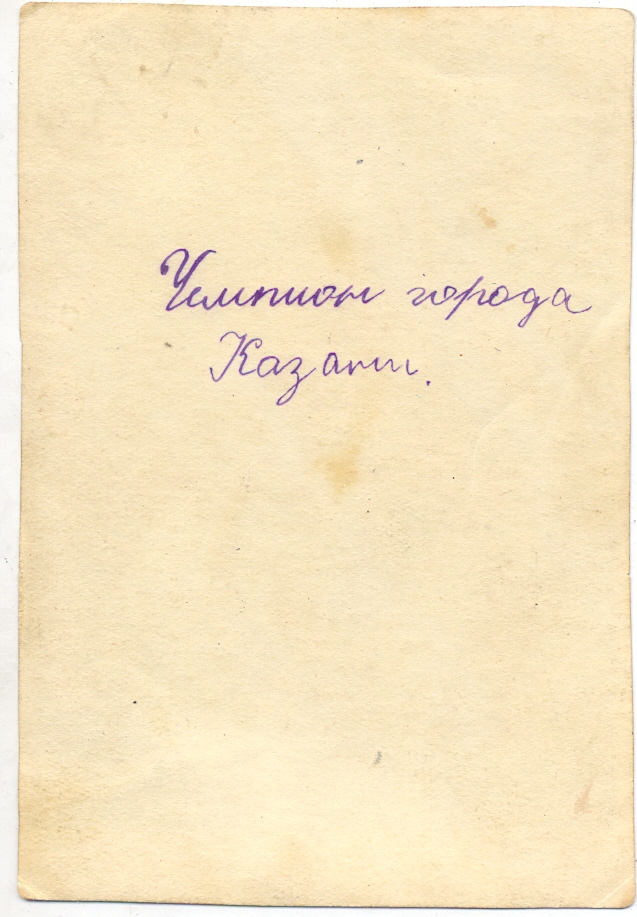 Чемпион города
Казани.